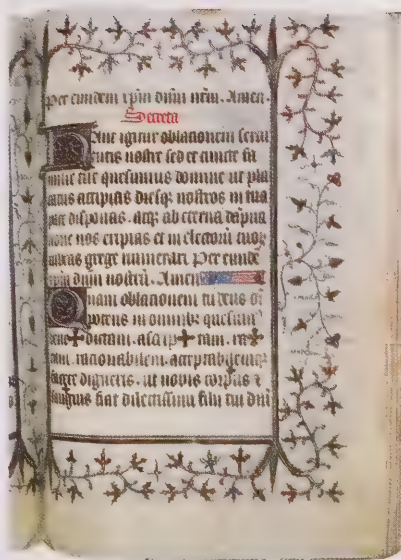 per eundem xpm dnm nrm. Amen.
Secreta
Hanc igitur oblationem serui
tutis nostre sed et cuncte fa
milie tue quesumus domine ut pla
catus accipias diesq nostros in tua
pace disponas. atq ab eterna dapna
tione nos eripias et in electorum tuor
iubeas grege numerari. Per eunde
xpm dnm nostrū. Amen
Quam oblationem tu deus oī
potens in omnibz quesum
bene✚dictam. ascrip✚tam. ra✚
tam. rationabilem. acceptabilemq
facere digneris. ut nobis corpus ⁊
sanguis fiat dilectissimi filii tui dni